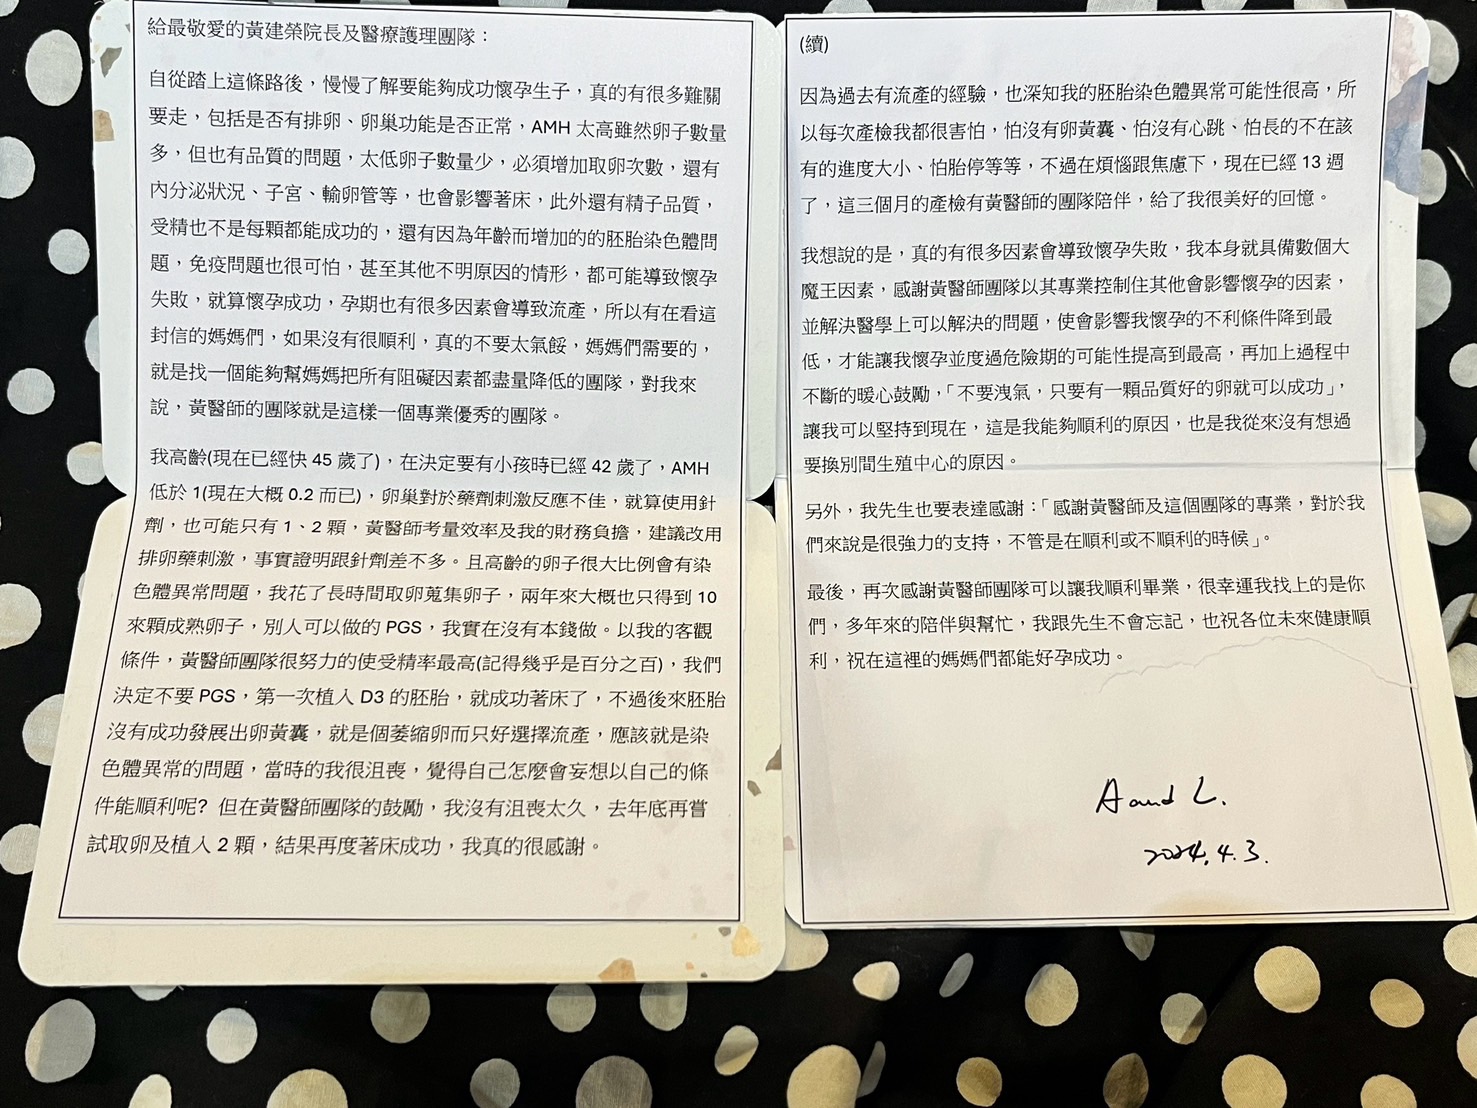 給最敬愛的黃建榮院長及醫療護理團隊：
自從踏上這條路後，慢慢了解要能夠成功懷孕生子，真的有很多難關
要走，包括是否有排卵、卵巢功能是否正常，AMH 太高雖然卵子數量
多，但也有品質的問題，太低卵子數量少，必須增加取卵次數，還有
內分泌狀況、子宮、輸卵管等，也會影響著床，此外還有精子品質，
受精也不是每顆都能成功的，還有因為年齡而增加的的胚胎染色體問
題，免疫問題也很可怕，甚至其他不明原因的情形，都可能導致懷孕
失敗，就算懷孕成功，孕期也有很多因素會導致流產，所以有在看這
封信的媽媽們，如果沒有很順利，真的不要太氣餒，媽媽們需要的，
就是找一個能夠幫媽媽把所有阻礙因素都盡量降低的團隊，對我來
說，黃醫師的團隊就是這樣一個專業優秀的團隊。
我高齡(現在已經快 45 歲了)，在決定要有小孩時已經 42 歲了，AMH
低於 1(現在大概 0.2 而已)，卵巢對於藥劑刺激反應不佳，就算使用針
劑，也可能只有 1、2 顆，黃醫師考量效率及我的財務負擔，建議改用
排卵藥刺激，事實證明跟針劑差不多。且高齡的卵子很大比例會有染
色體異常問題，我花了長時間取卵蒐集卵子，兩年來大概也只得到 10
來顆成熟卵子，別人可以做的 PGS，我實在沒有本錢做。以我的客觀
條件，黃醫師團隊很努力的使受精率最高(記得幾乎是百分之百)，我們
決定不要 PGS，第一次植入 D3 的胚胎，就成功著床了，不過後來胚胎
沒有成功發展出卵黃囊，就是個萎縮卵而只好選擇流產，應該就是染
色體異常的問題，當時的我很沮喪，覺得自己怎麼會妄想以自己的條
件能順利呢? 但在黃醫師團隊的鼓勵，我沒有沮喪太久，去年底再嘗
試取卵及植入 2 顆，結果再度著床成功，我真的很感謝。
(續)
因為過去有流產的經驗，也深知我的胚胎染色體異常可能性很高，所
以每次產檢我都很害怕，怕沒有卵黃囊、怕沒有心跳、怕長的不在該
有的進度大小、怕胎停等等，不過在煩惱跟焦慮下，現在已經 13 週
了，這三個月的產檢有黃醫師的團隊陪伴，給了我很美好的回憶。
我想說的是，真的有很多因素會導致懷孕失敗，我本身就具備數個大
魔王因素，感謝黃醫師團隊以其專業控制住其他會影響懷孕的因素，
並解決醫學上可以解決的問題，使會影響我懷孕的不利條件降到最
低，才能讓我懷孕並度過危險期的可能性提高到最高，再加上過程中
不斷的暖心鼓勵，「不要洩氣，只要有一顆品質好的卵就可以成功」，
讓我可以堅持到現在，這是我能夠順利的原因，也是我從來沒有想過
要換別間生殖中心的原因。
另外，我先生也要表達感謝：「感謝黃醫師及這個團隊的專業，對於我
們來說是很強力的支持，不管是在順利或不順利的時候」。
最後，再次感謝黃醫師團隊可以讓我順利畢業，很幸運我找上的是你
們，多年來的陪伴與幫忙，我跟先生不會忘記，也祝各位未來健康順
利，祝在這裡的媽媽們都能好孕成功。
A and L.
2024.4.3.